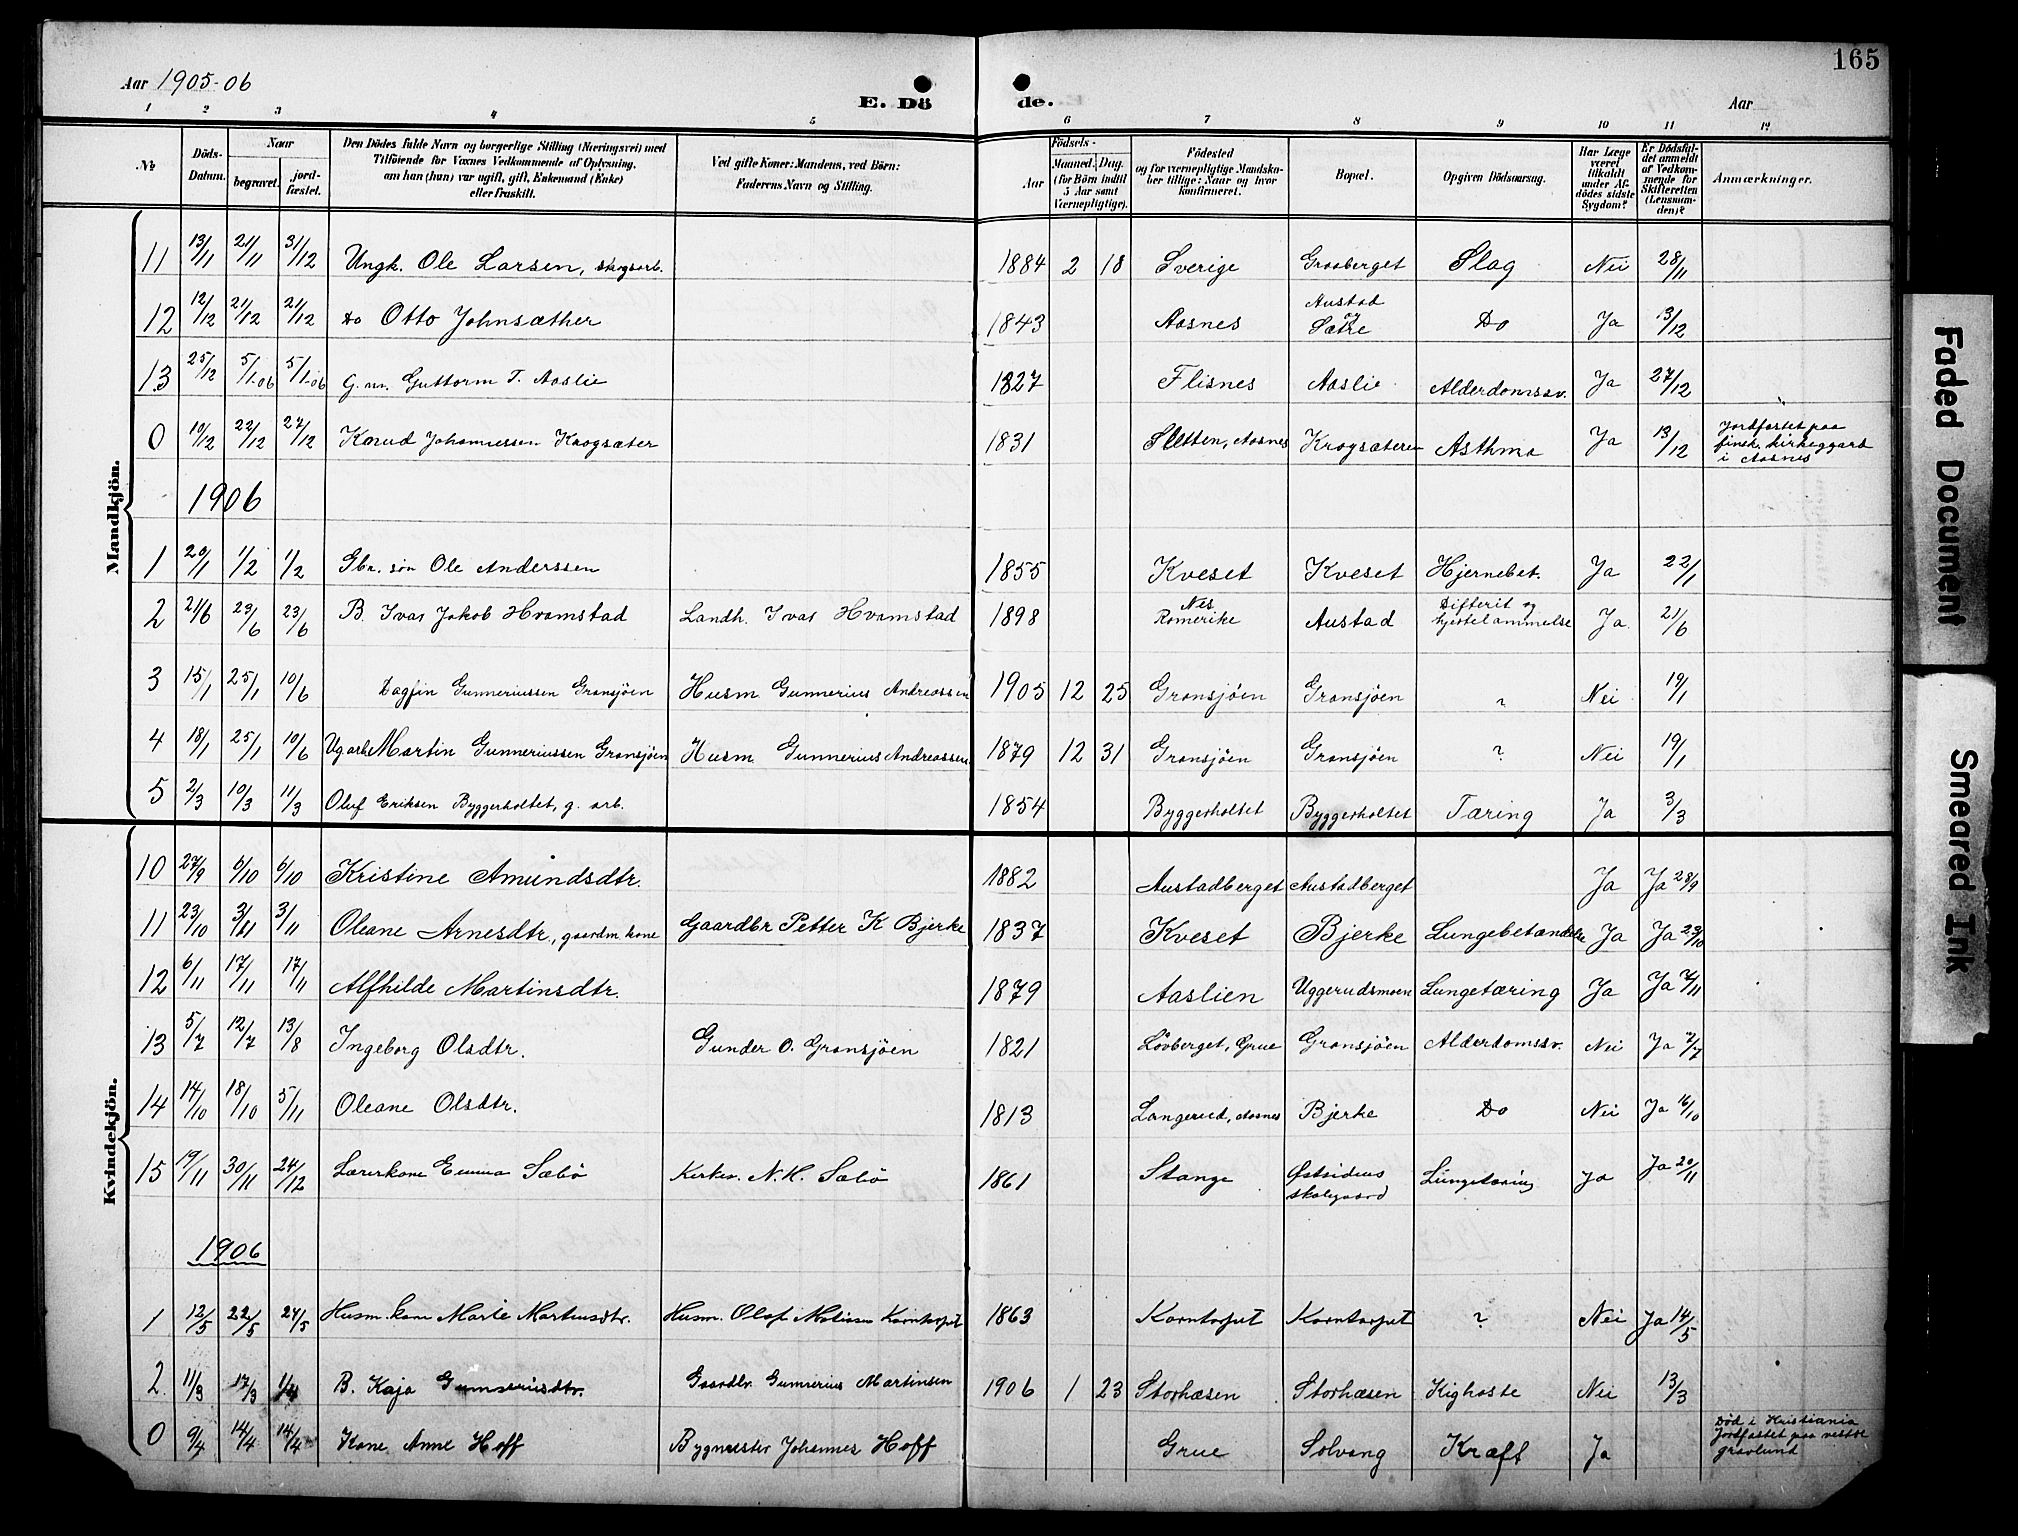 165
Aar 1905-06
E. Dö de.
Aar
1 2 3 4 5 6 7 8 9 10 11 12
No Döds-Datum. Naar begravet. jord-fæstet. Den Dödes fulde Navn og borgerlige Stilling (Næringsvei) med Tilföiende for Voxnes Vedkommende af Oplysning, om han (hun) var ugift, gift, Enkemand (Enke) eller fraskilt. Ved gifte Koner: Mandens, ved Börn: Faderens Navn og Stilling. Födsels- Aar Maaned. Dag. (for Börn indtil 5 Aar samt Værnepligtige). Födested og for værnepligtige Mandskaber tillige: Naar og hvor konfirmeret. Bopæl. Opgiven Dödsaarsag. Har Læge været tilkaldt under Afdödes sidste Sygdom? Er Dödsfaldet anmeldt af Vedkommende for Skifteretten (Lensmanden)? Anmærkninger.
Mandkjön.
11 13/11 21/11 31/12 Ungk. Ole Larsen, skogsarb. 1884 2 18 Sverige Graaberget Slag Nei 28/11
12 12/12 21/12 21/12 Do Otto Johnsæther 1843 Aasnes Austad og Sætre Do Ja 13/12
13 25/12 5/1-06 5/1-06 G.m. Guttorm T. Aaslie 1827 Flisnes Aaslie Alderdomssv. Ja 27/12
0 10/12 22/12 27/12 Knud Johannessen Krogsæter 1831 Sletten, Aasnes Krogsæteren Asthma Ja 13/12 Jordfæstet paa finsk. kirkeggard i Aasnes
1906
1 20/1 1/2 1/2 Gbr. søn Ole Anderssen 1855 Kveset Kveset Hjernebet. Ja 22/1
2 21/6 23/6 23/6 B. Ivar Jakob Hvamstad Landh. Ivar Hvamstad 1898 Nes Romerike Austad Difterit og hjertelammelse Ja 21/6
3 15/1 25/1 10/6 Dagfin Gunneriussen Gransjöen Husm Gunnerius Andreassen 1905 12 25 Gransjöen Gransjöen ? Nei 19/1
4 18/1 25/1 10/6 Ug arb Martin Gunneriussen Gransjöen Husm Gunnerius Andreassen 1879 12 31 Gransjöen Gransjöen ? Nei 19/1
5 2/3 10/3 11/3 Oluf Eriksen Byggerholtet, g. arb. 1854 Byggerholtet Byggerholtet Tæring Ja 3/3
Kvindekjön.
10 27/9 6/10 6/10 Kristine Amundsdtr. 1882 Austadberget Austadberget Ja Ja 28/9
11 23/10 3/11 3/11 Oleane Arnesdtr, gaardm. kone Gaardbr Petter K Bjerke 1837 Kveset Bjerke Lungebetændelse Ja Ja 23/10
12 6/11 17/11 17/11 Alfhilde Martinsdtr. 1879 Aaslien Uggerudsmoen Lungetæring Ja Ja 7/11
13 5/7 12/7 13/8 Ingeborg Olsdtr. Gunder O. Gransjöen 1821 Lövberget, Grue Gransjöen Alderdomssv. Nei Ja 7/7
14 14/10 18/10 5/11 Oleane Olsdtr. 1813 Langerud, Aasnes Bjerke Do Nei Ja 16/10
15 19/11 30/11 24/12 Lærerkone Emma Sæbö Kirkes. N. K. Sæbö 1861 Stange Østsidens skolegaard Lungetæring Ja Ja 20/11
1906
1 12/5 22/5 27/5 Husm. kone Marte Martinsdtr. Husm. Olaf Korntorpet 1863 Korntorpet Korntorpet ? Nei Ja 14/5
2. 11/3 17/3 B. Kaja Gunneriusdtr. Gaardbr. Gunnerius Martinsen 1906 1 23 Storhæsen Storhæsen Kighoste Nei 13/3
0 9/4 14/4 14/4 Kone Anne Hoff Bygmester Johannes Hoff Grue Solvang Kræft Ja Död i Kristiania Jordfæstet paa vestre gravlund
Faded Document
Smeared Ink